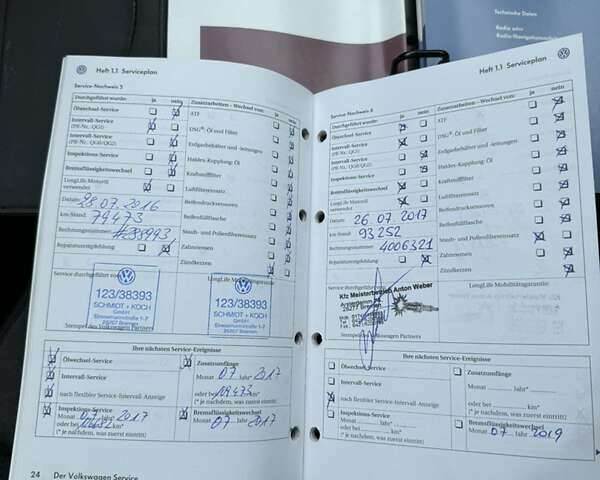 Technische Daten
Radio oder
Heft 1.1 Serviceplan
Service-Nachweis 5
Durchgeführt wurde: ja nein
Ölwechsel-Service
Intervall-Service
(PR-Nr.: QG1)
Intervall-Service
(PR-Nr.: QG0/QG2)
Inspektions-Service
Bremsflüssigkeitswechsel
LongLife Motoröl
verwendet
Datum: 28.07.2016
km-Stand: 79473
Rechnungsnummer:
Reparaturempfehlung
Zusatzarbeiten - Wechsel von: ja nein
ATF
DSG®: Öl und Filter
Erdgasbehälter und -leitungen
Haldex-Kupplung: Öl
Kraftstofffilter
Luftfiltereinsatz
Reifendrucksensoren
Reifenfüllflasche
Staub- und Pollenfiltereinsatz
Zahnriemen
Zündkerzen
Service durchgeführt von:
LongLife Mobilitätsgarantie:
123/38393
SCHMIDT + KOCH
GmbH
Stresemannstraße 1-7
28207 Bremen
123/38393
SCHMIDT + KOCH
GmbH
Stresemannstraße 1-7
28207 Bremen
Stempel des Volkswagen Partners
Ihre nächsten Service-Ereignisse
Ölwechsel-Service
Intervall-Service
nach flexibler Service-Intervall-Anzeige
Inspektions-Service
Monat 07 Jahr* 2017
oder bei km*
(* je nachdem, was zuerst eintritt)
Zusatzumfänge
Monat 07 Jahr* 2017
oder bei 109473 km*
(* je nachdem, was zuerst eintritt)
Bremsflüssigkeitswechsel
Monat 07 Jahr 2017
24 Der Volkswagen Service
Heft 1.1 Serviceplan
Service-Nachweis 6
Durchgeführt wurde: ja nein
Ölwechsel-Service
Intervall-Service
(PR-Nr.: QG1)
Intervall-Service
(PR-Nr.: QG0/QG2)
Inspektions-Service
Bremsflüssigkeitswechsel
LongLife Motoröl
verwendet
Datum: 26.07.2017
km-Stand: 93252
Rechnungsnummer: 4006321
Reparaturempfehlung
Zusatzarbeiten - Wechsel von: ja nein
ATF
DSG®: Öl und Filter
Erdgasbehälter und -leitungen
Haldex-Kupplung: Öl
Kraftstofffilter
Luftfiltereinsatz
Reifendrucksensoren
Reifenfüllflasche
Staub- und Pollenfiltereinsatz
Zahnriemen
Zündkerzen
Service durchgeführt
LongLife Mobilitätsgarantie:
Kfz Meisterbetrieb Anton Weber
Bremen
Stempel des Volkswagen Partners
Ihre nächsten Service-Ereignisse
Ölwechsel-Service
Intervall-Service
nach flexibler Service-Intervall-Anzeige
Inspektions-Service
Monat Jahr*
oder bei km*
(* je nachdem, was zuerst eintritt)
Zusatzumfänge
Monat Jahr*
oder bei km*
(* je nachdem, was zuerst eintritt)
Bremsflüssigkeitswechsel
Monat 07 Jahr 2019